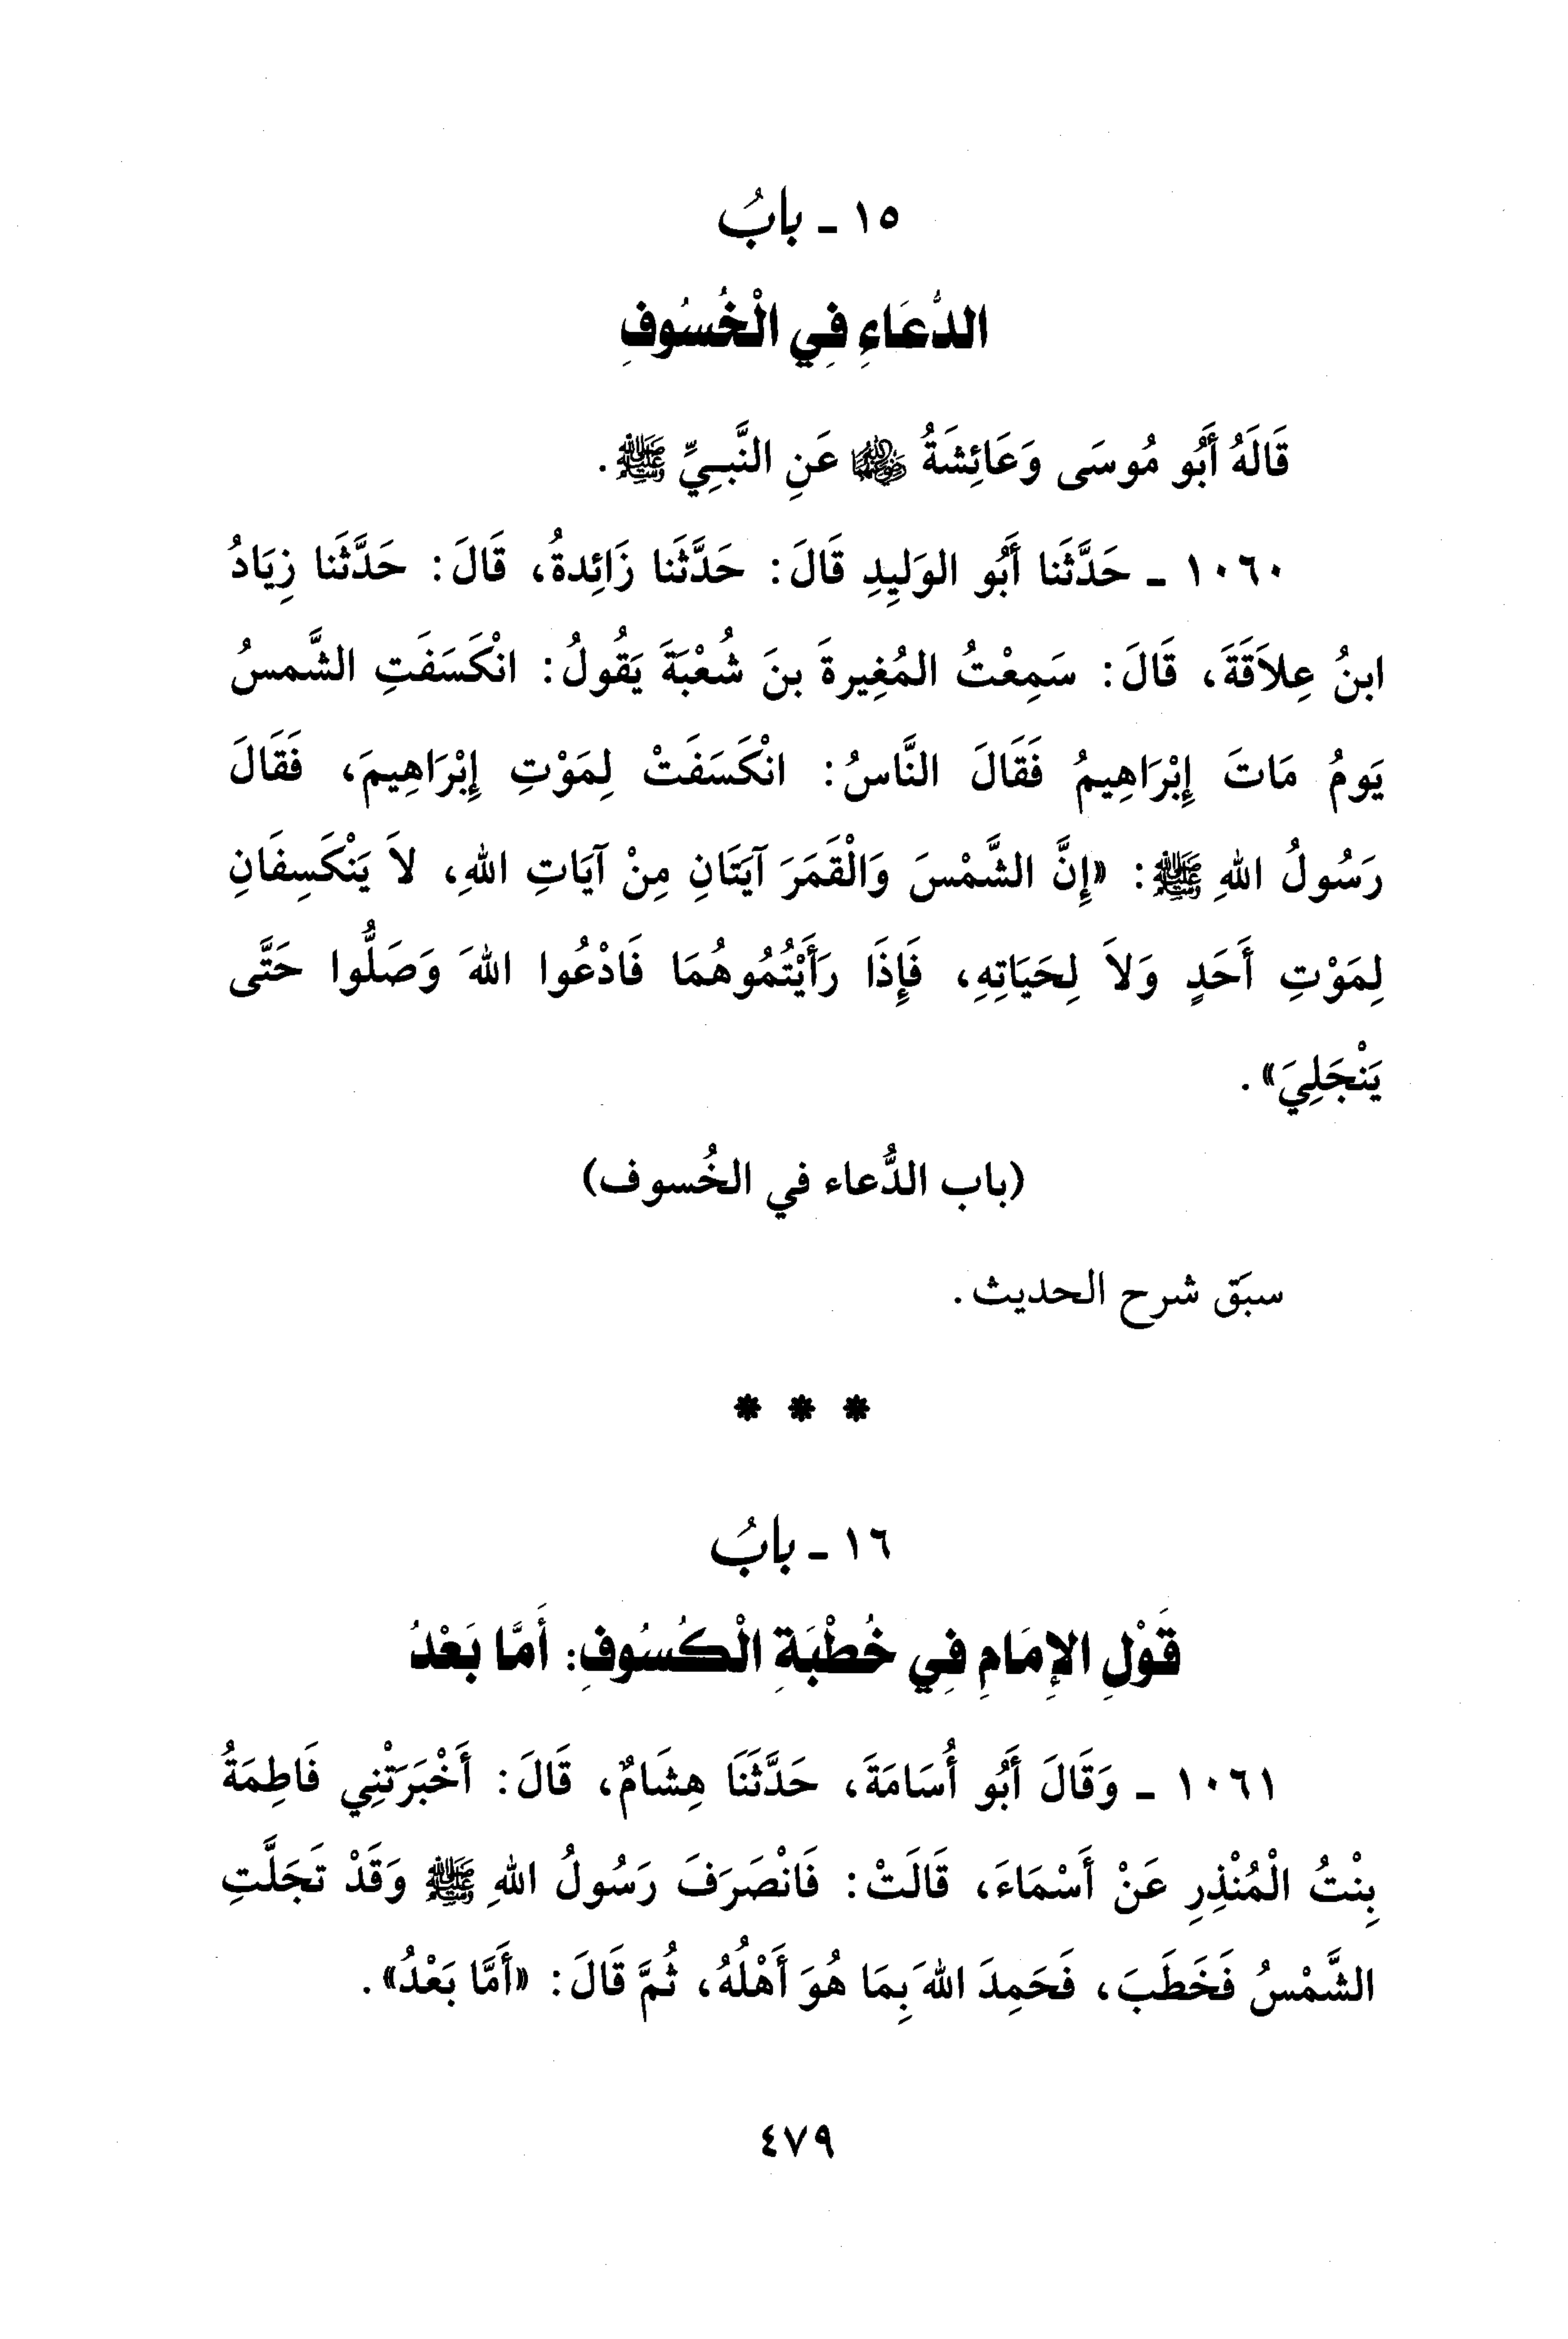 ١٥ ـ بابُ
الدُّعَاءِ فِي الْخُسُوفِ
قَالَهُ أَبُو مُوسَى وَعَائِشَةُ رضي الله عنهما عَنِ النَّبِيِّ ﷺ.
١٠٦٠ ـ حَدَّثَنا أَبُو الوَلِيدِ قَالَ: حَدَّثَنا زَائِدةُ، قَالَ: حَدَّثَنا زِيَادُ
ابنُ عِلاَقَةَ، قَالَ: سَمِعْتُ المُغِيرةَ بنَ شُعْبَةَ يَقُولُ: انْكَسَفَتِ الشَّمسُ
يَومُ مَاتَ إِبْرَاهِيمُ فَقَالَ النَّاسُ: انْكَسَفَتْ لِمَوْتِ إِبْرَاهِيمَ، فَقَالَ
رَسُولُ اللهِ ﷺ: «إِنَّ الشَّمْسَ وَالْقَمَرَ آيَتَانِ مِنْ آيَاتِ اللهِ، لاَ يَنْكَسِفَانِ
لِمَوْتِ أَحَدٍ وَلاَ لِحَيَاتِهِ، فَإِذَا رَأَيْتُمُوهُمَا فَادْعُوا اللهَ وَصَلُّوا حَتَّى
يَنْجَلِيَ».
(باب الدُّعاء في الخُسوف)
سبَق شرح الحديث.
* * *
١٦ ـ بابُ
قَوْلِ الإِمَامِ فِي خُطْبَةِ الْكُسُوفِ: أَمَّا بَعْدُ
١٠٦١ ـ وَقَالَ أَبُو أُسَامَةَ، حَدَّثَنَا هِشَامٌ، قَالَ: أَخْبَرَتْنِي فَاطِمَةُ
بِنْتُ الْمُنْذِرِ عَنْ أَسْمَاءَ، قَالَتْ: فَانْصَرَفَ رَسُولُ اللهِ ﷺ وَقَدْ تَجَلَّتِ
الشَّمْسُ فَخَطَبَ، فَحَمِدَ اللهَ بِمَا هُوَ أَهْلُهُ، ثُمَّ قَالَ: «أَمَّا بَعْدُ».
٤٧٩